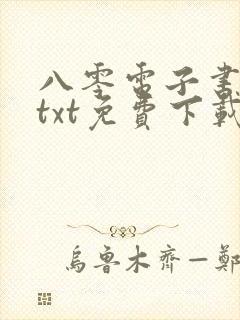 八零電子書
txt免費下載
烏魯木齊—鄭